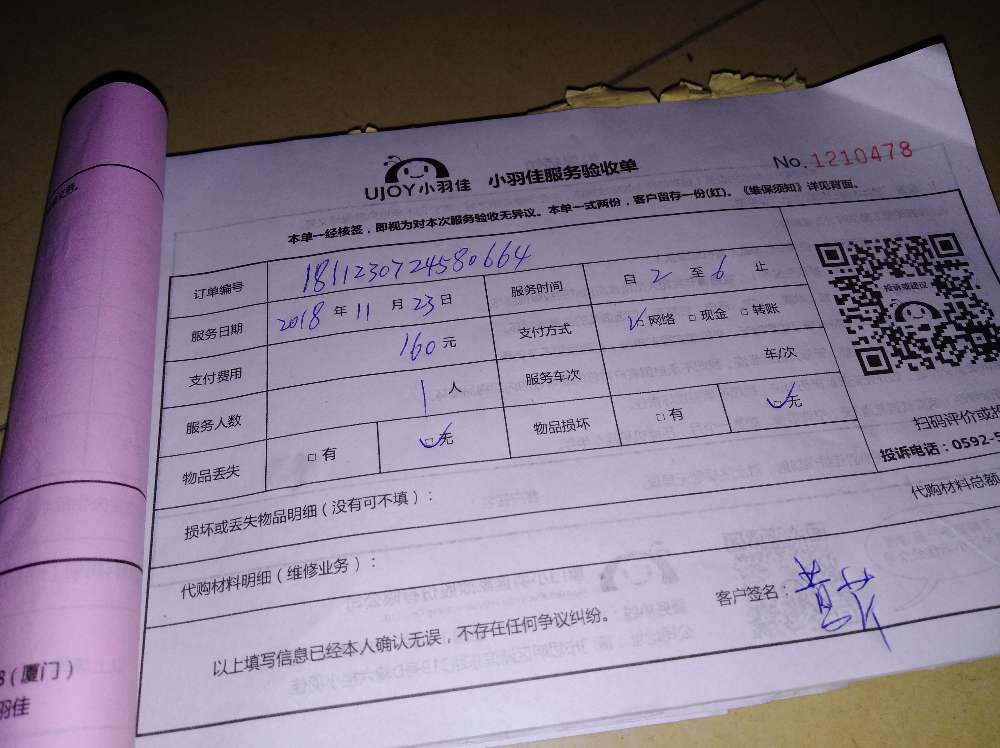 UJOY小羽佳 小羽佳服务验收单 No.1210478
本单一经核签，即视为对本次服务验收无异议。本单一式两份，客户留存一份(红)。《维保须知》详见背面。
订单编号 1811230724580664
服务日期 2018 年 11 月 23 日 服务时间 自 2 至 6 止
支付费用 160 元 支付方式 □网络 □现金 □转账
服务人数 1 人 服务车次 车/次
物品丢失 □有 □无 物品损坏 □有 □无
投诉或建议
扫码评价或投
投诉电话：0592-5
损坏或丢失物品明细（没有可不填）：
代购材料总额
代购材料明细（维修业务）：
客户签名：
以上填写信息已经本人确认无误，不存在任何争议纠纷。
8（厦门）
羽佳